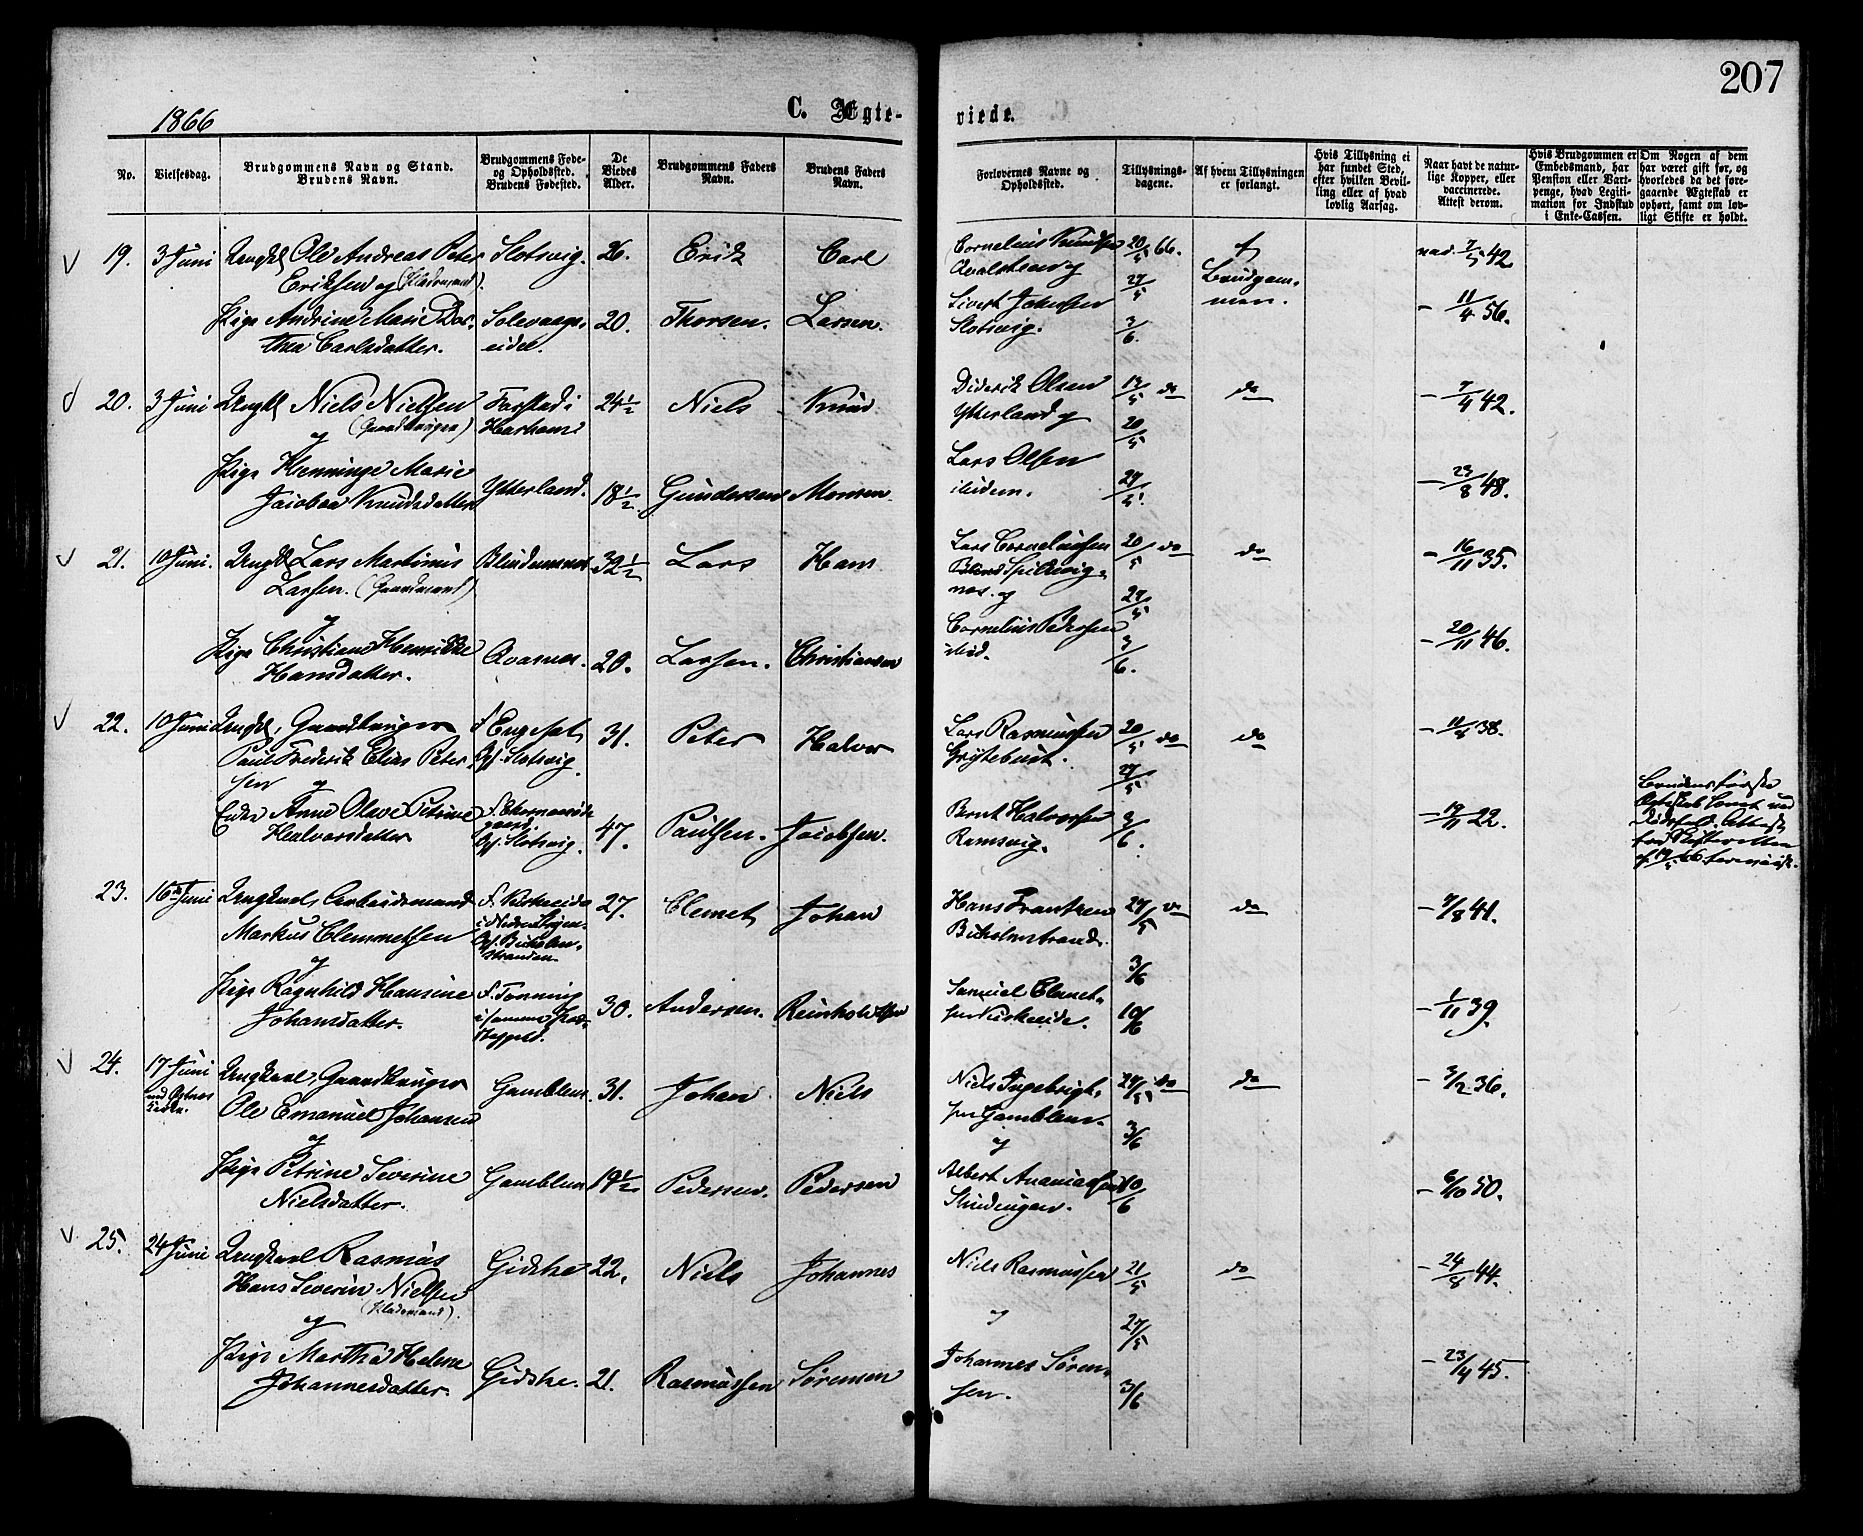 207
1866
C. Ægte-
viede.
No.
Vielsesdag.
Brudgommens Navn og Stand.
Brudens Navn.
Brudgommens Føde-
og Opholdssted.
Brudens Fødested.
De
Viedes
Alder.
Brudgommens Faders
Navn.
Brudens Faders
Navn.
Forlovernes Navne og
Opholdssted.
Tillysnings-
dagene.
Af hvem Tillysningen
er forlangt.
Hvis Tillysning ei
har fundet Sted,
efter hvilken Bevil-
ling eller af hvad
lovlig Aarsag.
Naar havt de natur-
lige Kopper, eller
vaccinerede.
Attest derom.
Hvis Brudgommen er
Embedsmand, har
Pension eller Vart-
penge, hvad Legiti-
mation for Indskud
i Enke-Cassen.
Om Nogen af dem
har været gift før, og
hvorledes da det fore-
gaaende Ægteskab er
ophørt, samt om lov-
ligt Skifte er holdt.
19. 3 Juni Ungkl Ole Andreas Peter Slotsvig. 26. Erik Carl
Eriksen og (Pladsmand)
Pige Andrine Marie Dor- Solevaags- 20. Thorsen. Larsen.
thea Carlsdatter. eidet.
Cornelius Knudsen 20/5 66. Af vac. 7/5 42
27/5 Brudgom-
Sivert Johnsen men. - 11/4 56.
Slotsvig. 3/6.
20. 3 Juni Ungkl Niels Nielsen Farstad i 24 1/2 Niels Knud
(Gaardbruger) Harham
og
Pige Henninge Marie Ytterland. 18 1/2 Gundersen Monsen.
Jacobea Knudsdatter
Diderik Olsen 13/5 do do - 7/4 42.
Ytterland og 20/5
Lars Olsen 27/5. - 23/8 48.
ibidem.
21. 10 Juni. Ungkl Lars Martinus Blindemnes 32 1/2 Lars Hans
Larsen. (Gaardmand)
og
Pige Christiane Henrikke Qvasnes. 20. Larsen. Christiansen
Hansdatter.
Lars Corneliussen 20/5 do do - 16/11 35.
Spilkevig-
nes. og 27/5
Cornelius Pedersen 3/6. - 20/11 46.
ibid.
22. 10 Juni Ungkl, Gaardbruger f. Engeset, 31. Peter Halvor
Paul Frederik Elias Peter- Opf. Slotsvig.
sen og
Enke Anne Olave Petrine 47. Paulsen. Jacobsen.
Halvorsdatter Opf. Slotsvig.
Lars Rasmussen 20/5 do do - 11/8 38.
Grytebust. 27/5
Bernt Halvorsen 3/6. - 19/11 22.
Ramsvig.
Brudens første
Ægteskab
23. 16de Juni Ungkarl, Arbeidsmand 27. Clemet Johan
Markus Clemmetsen
og
Pige Ragnhild Hansine f. Tonning 30. Andersen. Reinholdtsen
Johansdatter.
Hans Frantzen 27/5 do do - 7/8 41.
Buholmstrand. 3/6
Samuel Clemet- 10/6 - 1/11 39.
24. 17 Juni Ungkarl, Gaardbruger Gamblem. 31. Johan Niels
ved Ostnes Ole Emanuel Johansen
Kirke. og
Pige Petrine Severine Gamblem 19 1/2 Pedersen. Pedersen
Nielsdatter.
Niels Ingebrigt- 27/5 do do - 3/2 36.
sen Gamblem. 3/6
og
Albert Ananiassen 10/6 - 6/10 50.
25. 24 Juni Ungkarl Rasmus Gidske 22. Niels Johannes
Hans Severin Nielsen
(Pladsmand).
og
Pige Martha Helene Gidske. 21. Rasmussen Sørensen
Johannesdatter.
Niels Rasmussen 21/5 do - 24/8 44.
og 27/5
Johannes Søren- - 23/4 45.
sen. 3/6